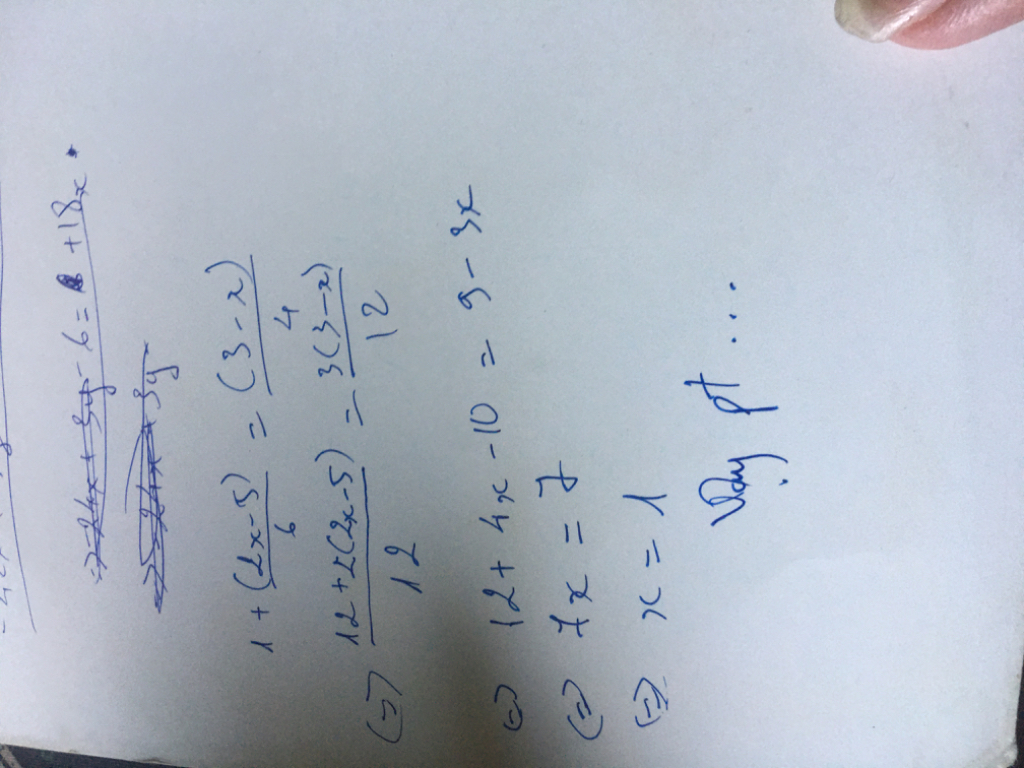 => 24x + 3y - 6 = +18x
=> 24x 3y
1 + (2x-5)/6 = (3-x)/4
(=) 12+2(2x-5)/12 = 3(3-x)/12
(=) 12 + 4x - 10 = 9 - 3x
(=) 7x = 7
(=) x = 1
Vậy pt ...